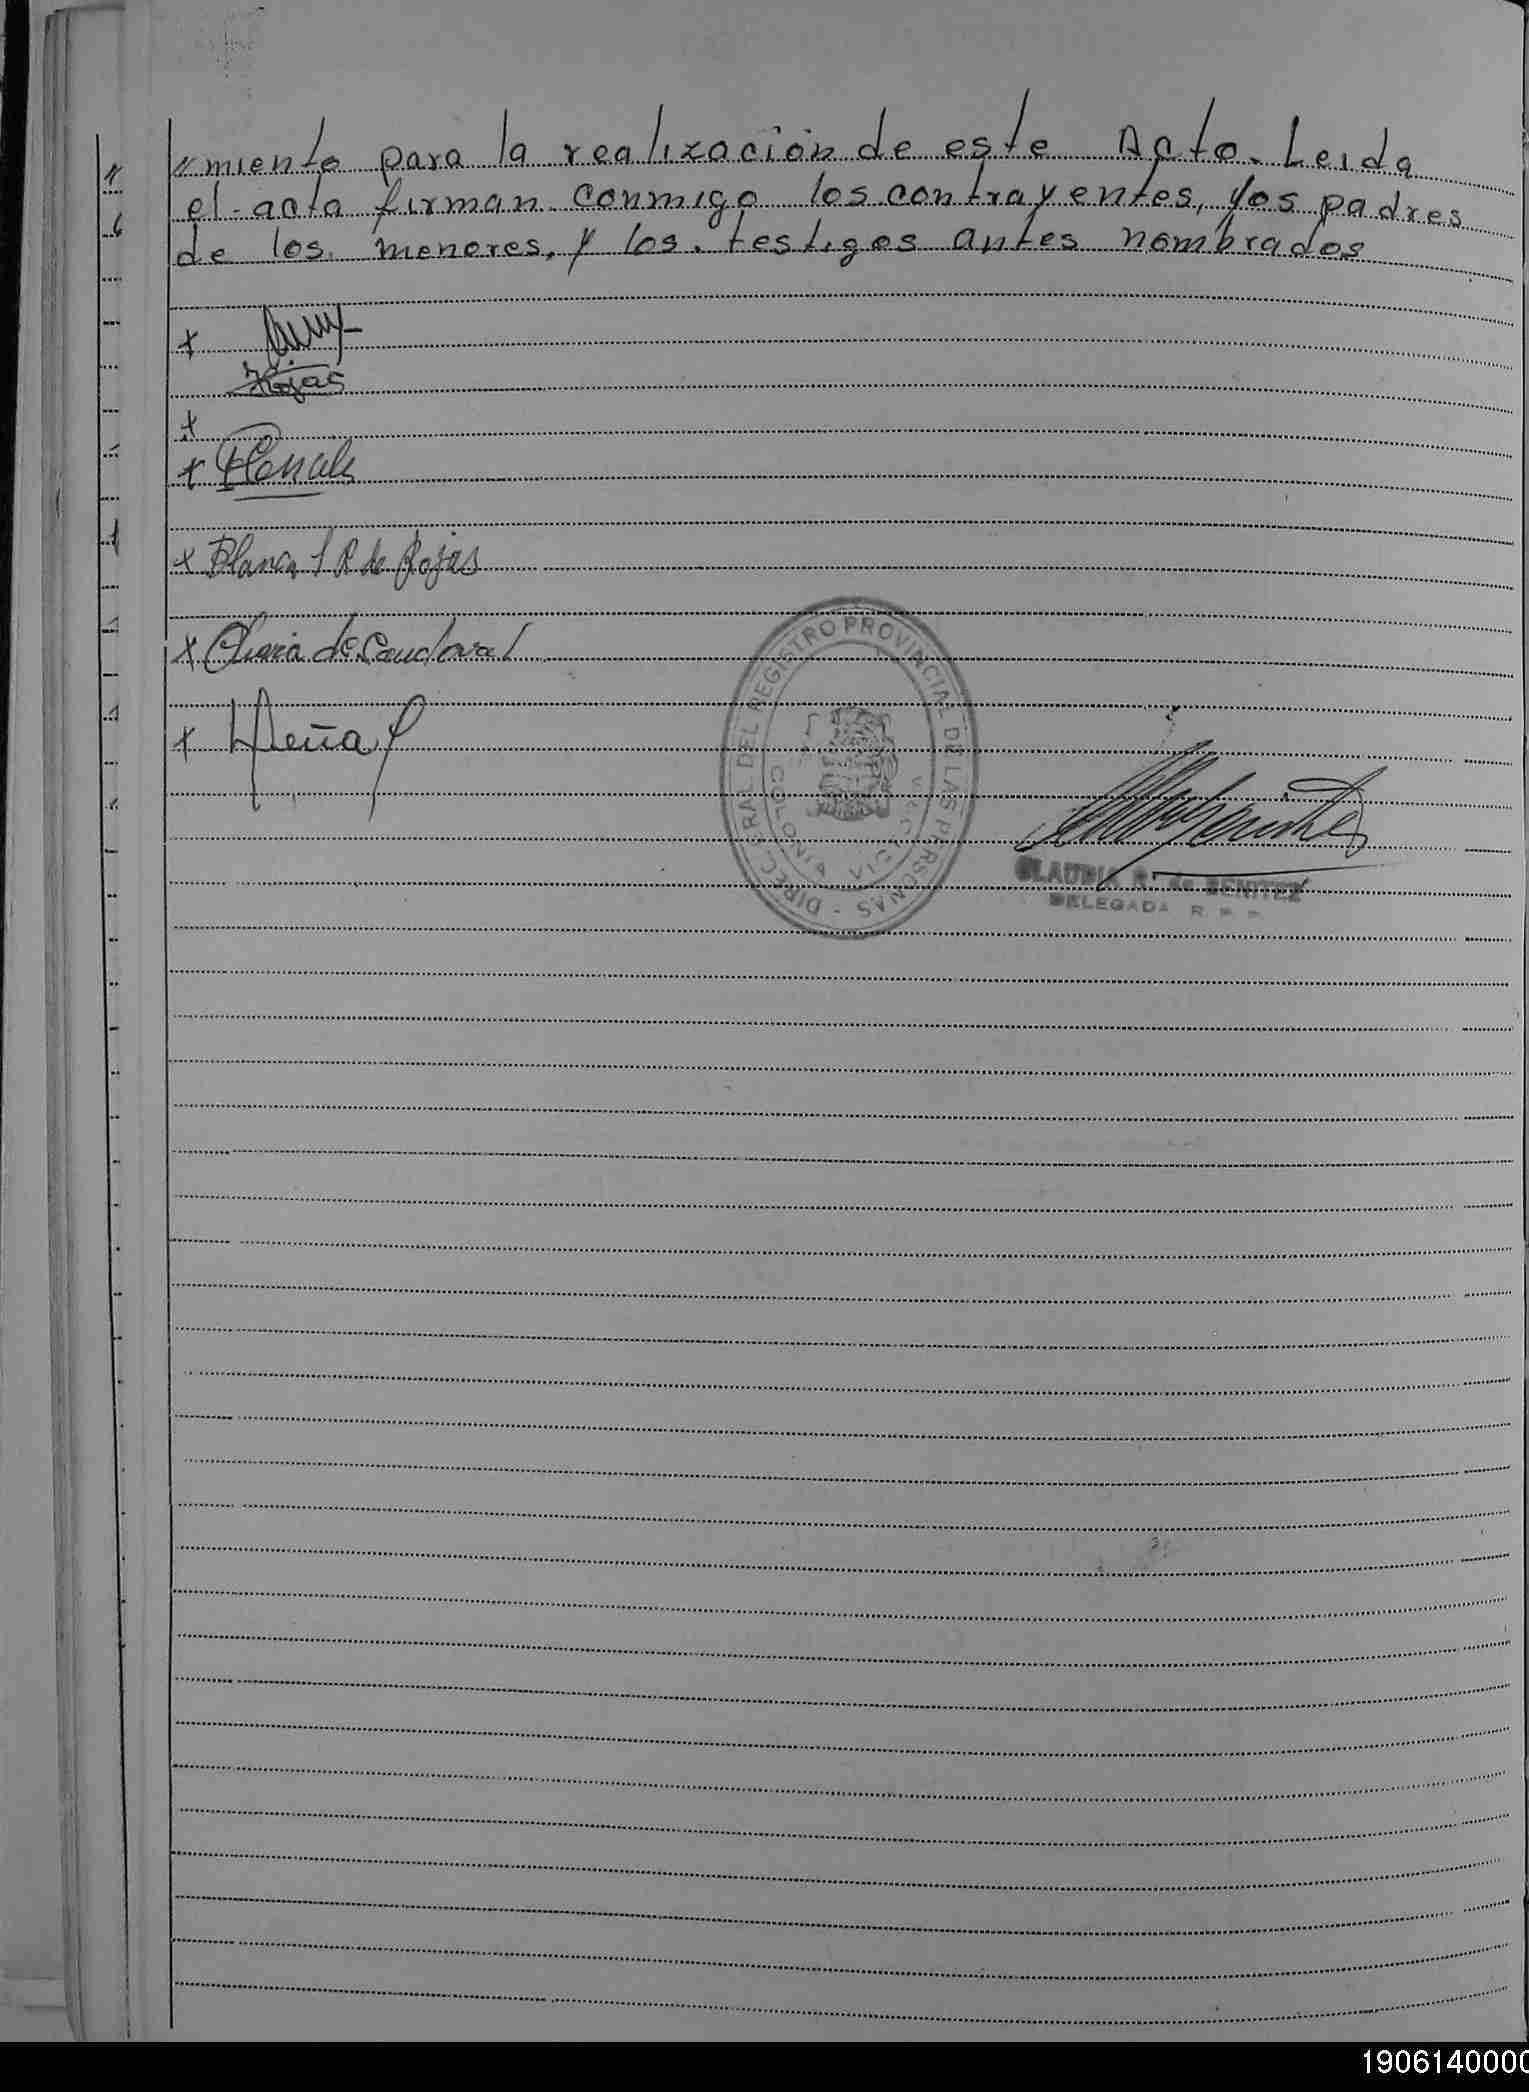 //miento para la realización de este Acto. Leida
el acta firman conmigo los contrayentes, los padres
de los menores, y los testigos antes nombrados
x
Rojas
x
x
x Blanca R de Rojas
x de Sandoval
x Peña
DIREC. GRAL DEL REGISTRO PROVINCIAL DE LAS PERSONAS -
COLONIA VICTORIA
CLAUDIA R. de BENITEZ
DELEGADA R. P. P.
1906140000